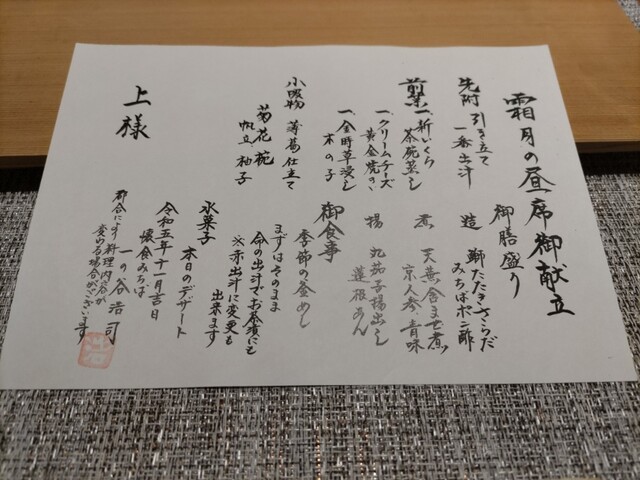 霜月の昼席御献立
先附 引き立て
一番出汁
前菜
一、新いくら
茶碗蒸し
一、クリームチーズ
黄金焼のき
一、金時草浸し
木の子
小吸物 薄葛仕立て
菊花椀
帆立 柚子
御膳盛り
造 鰤たたきさらだ
みちばポン酢
煮 天黄含ませ煮
京人参 青味
揚 丸茄子揚出し
蓮根あん
御食事
季節の釜めし
まずはそのまま
命の出汁でお茶漬にも
※赤出汁に変更も
出来ます
水菓子
本日のデザート
令和五年十一月吉日
懐食みちば
一の谷浩司
都合により料理内容が
変わる場合がございます
上様